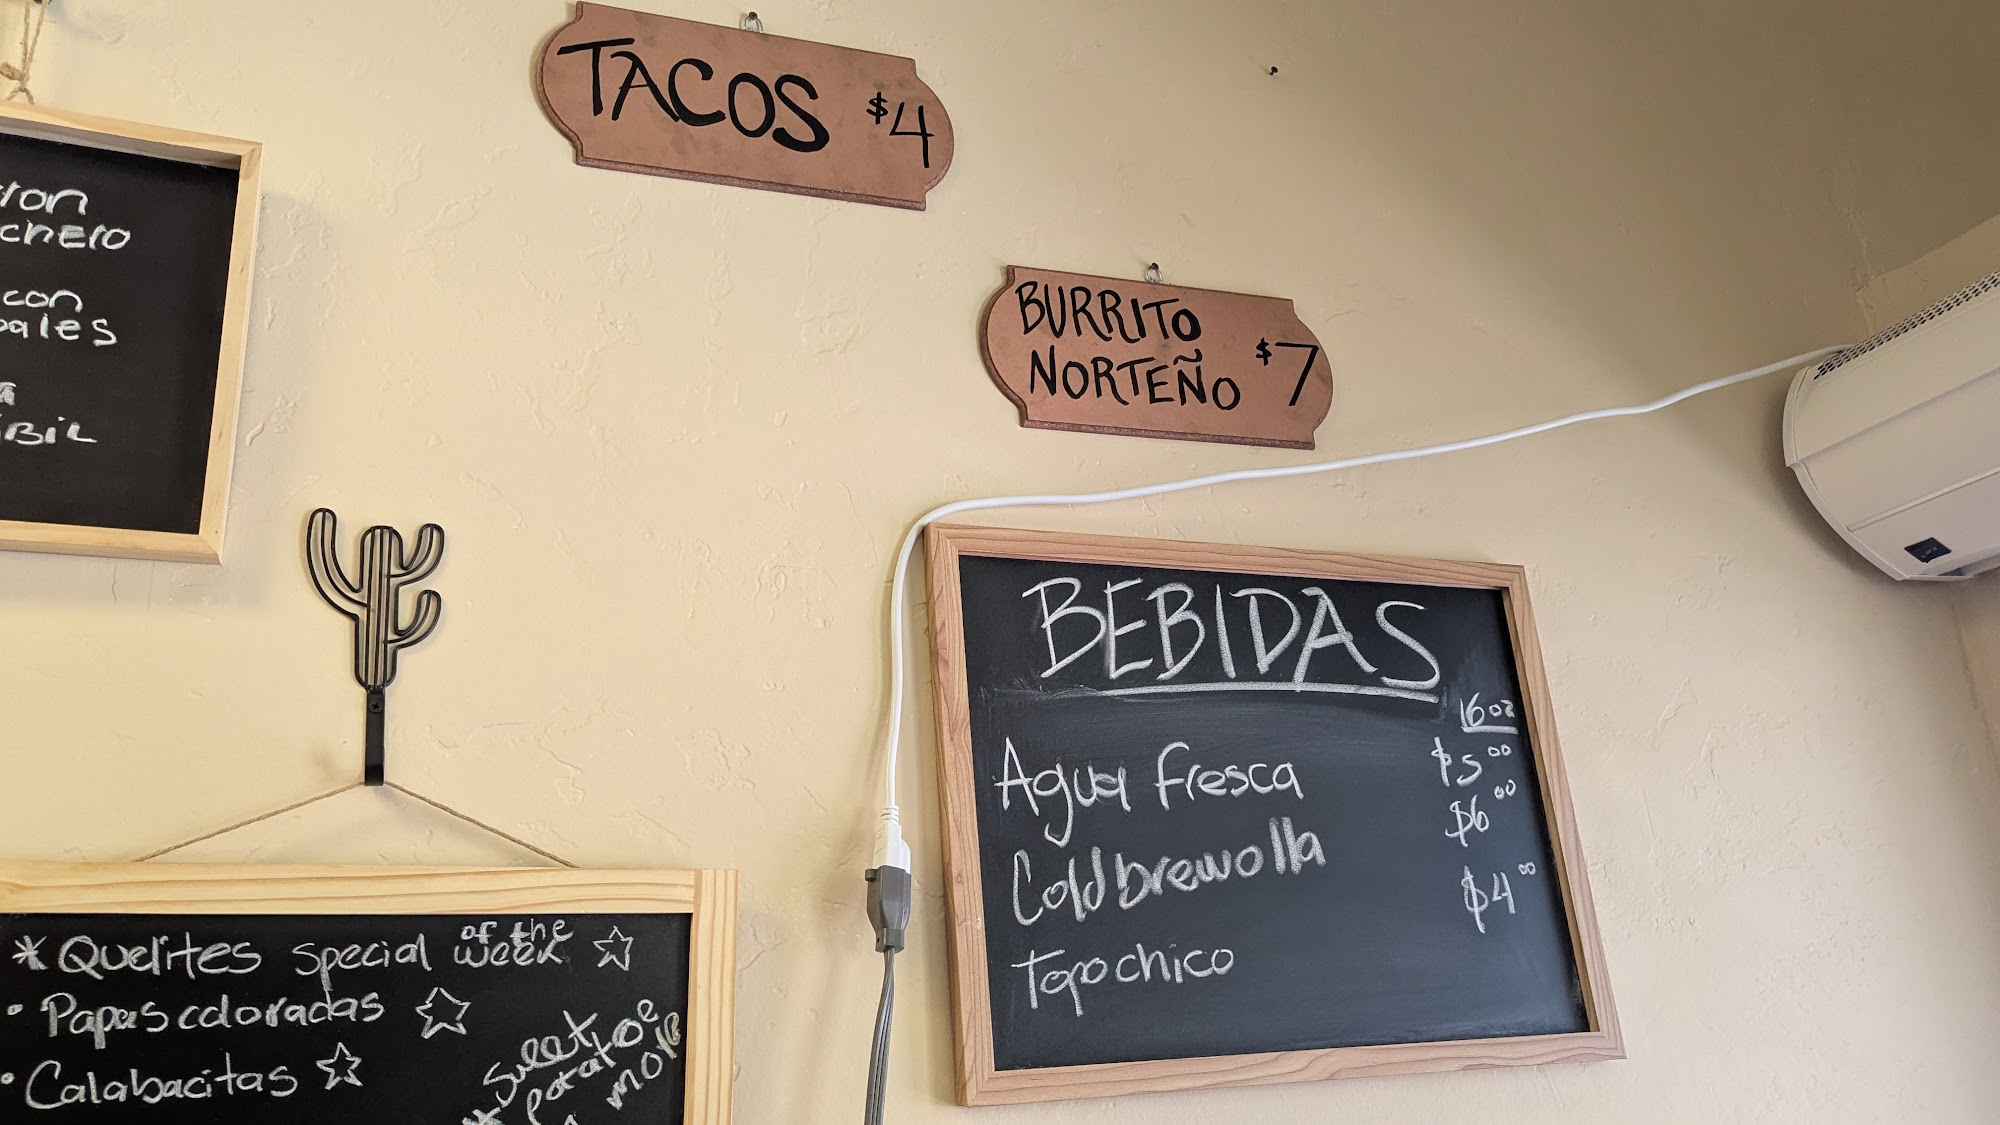 TACOS $4
BURRITO
NORTEÑO $7
con
BEBIDAS
16oz
Agua fresca $5.00
Cold brew olla $6.00
Topo chico $4.00
* Quelites special of the week
• Papas coloradas
• Calabacitas
* sweet
potatoe
more